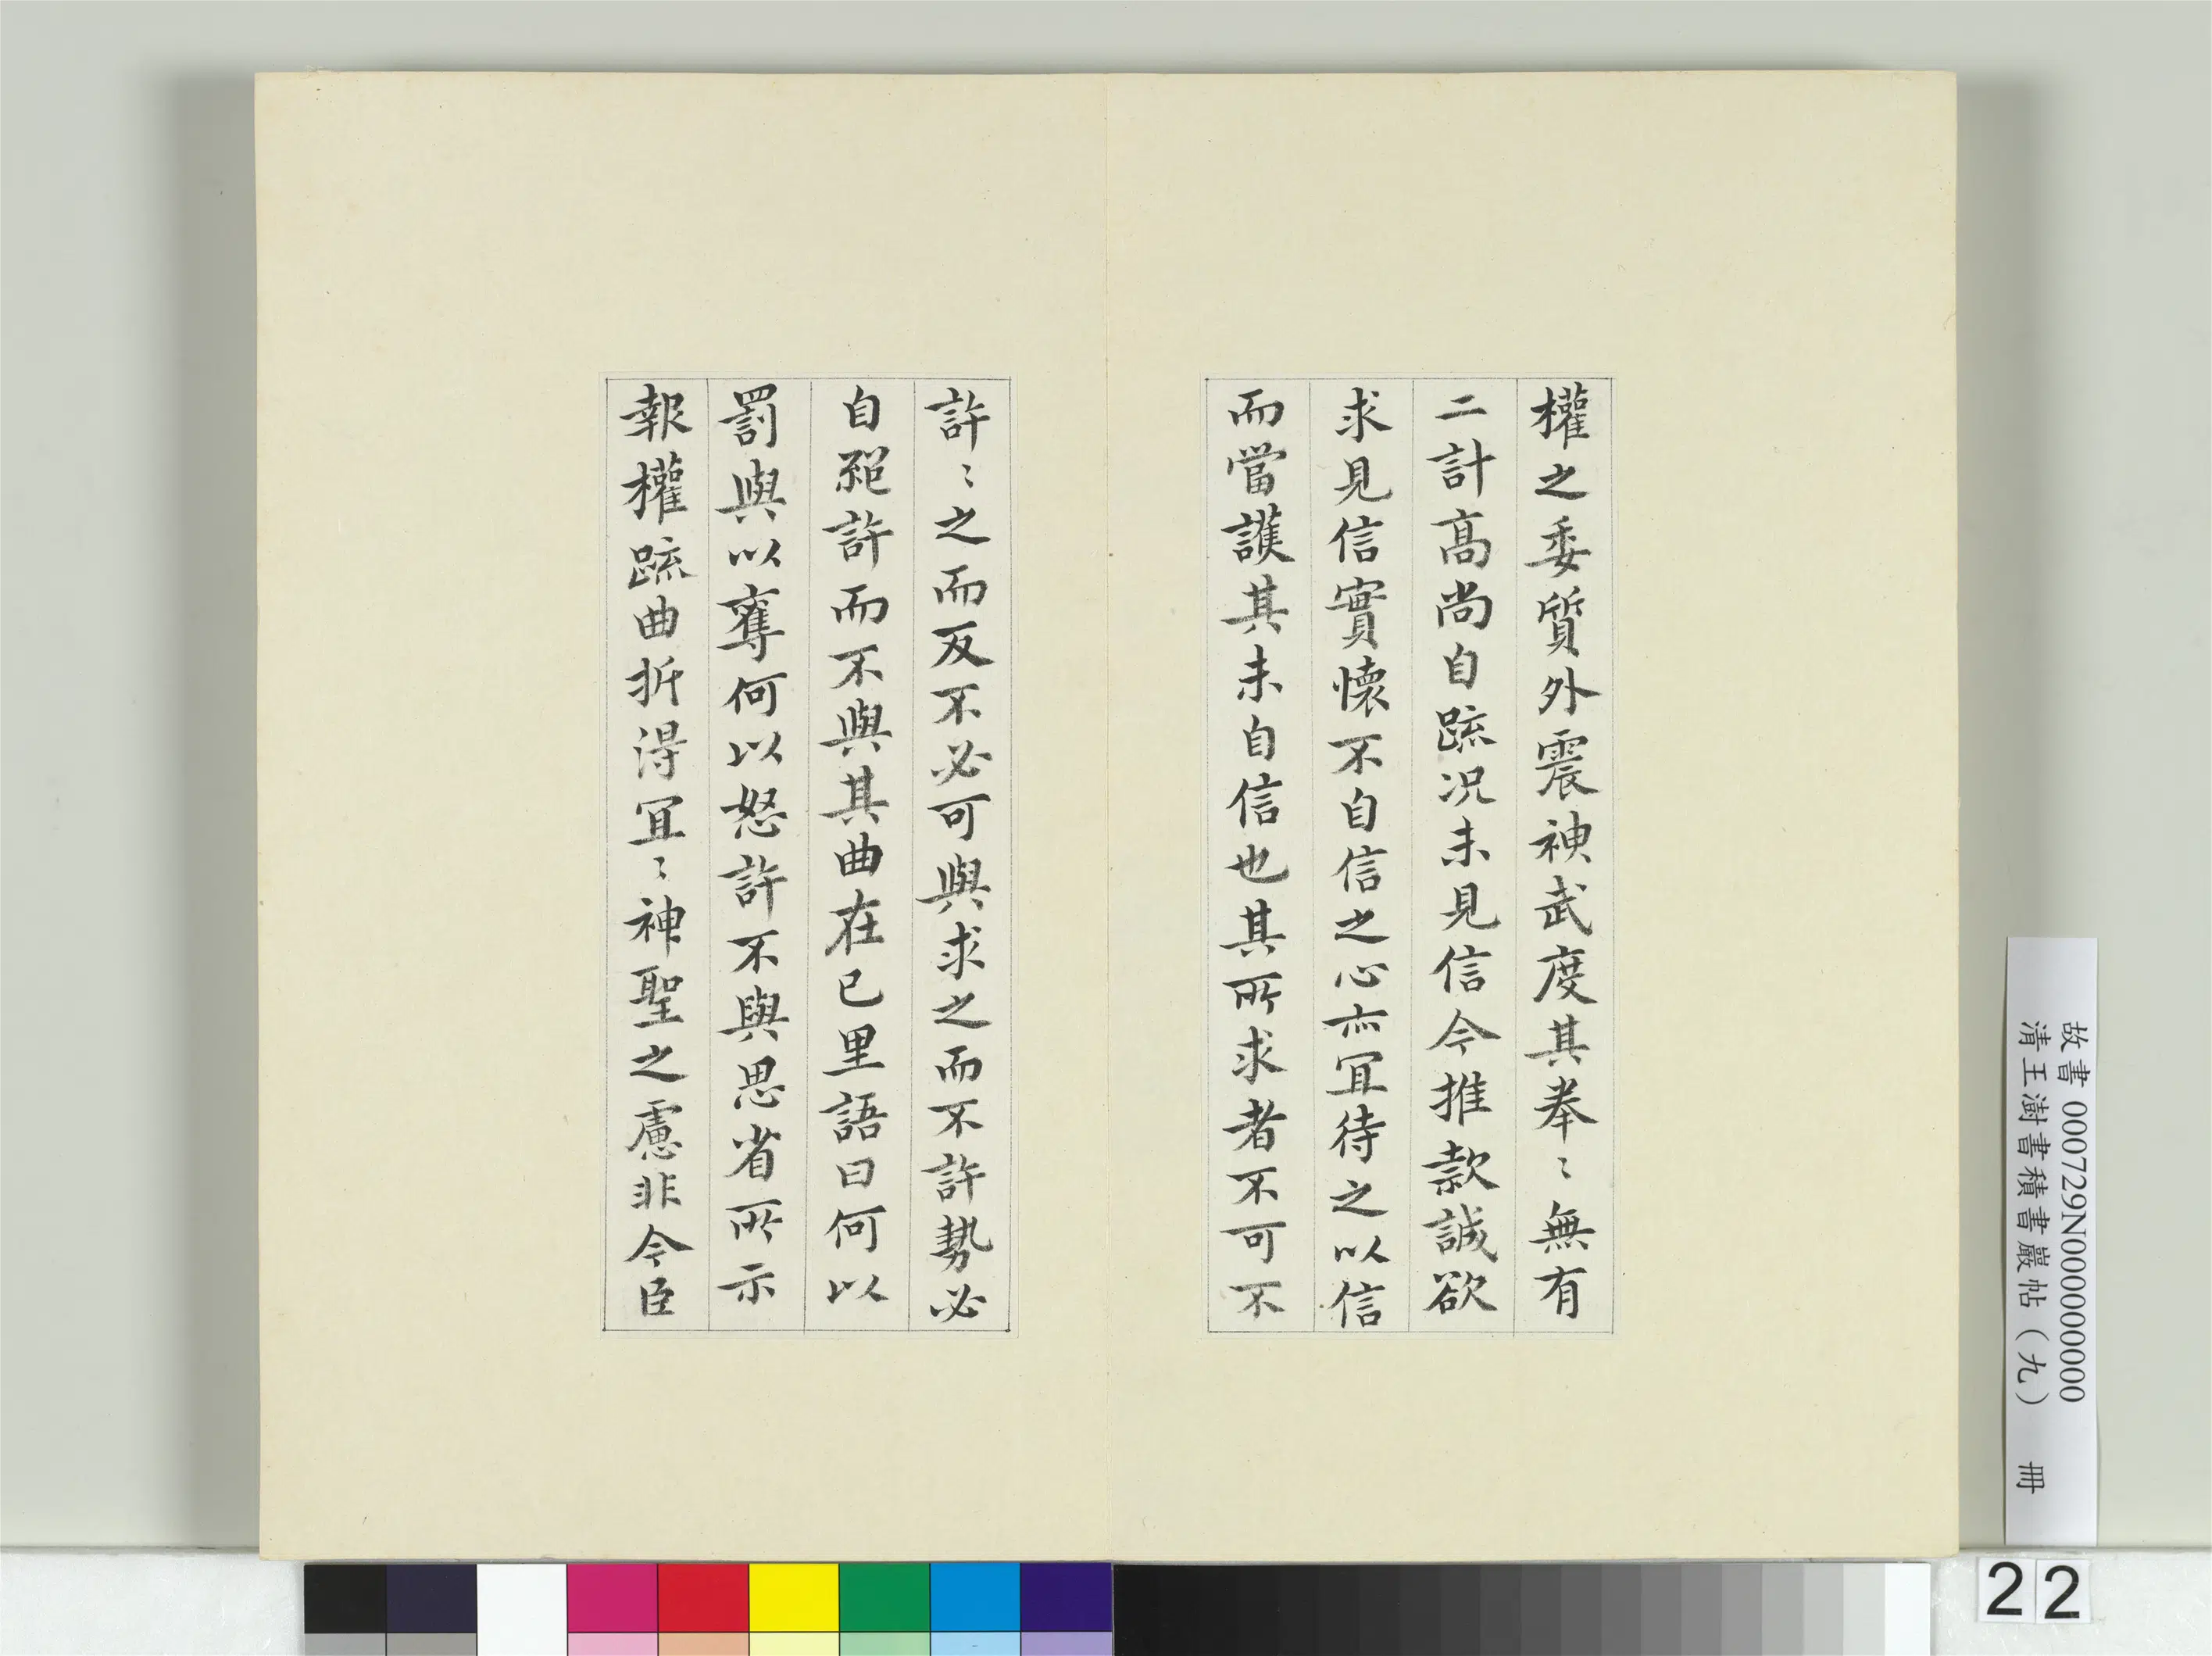 權之委質外震神武度其拳〻無有
二計高尚自疏况未見信今推款誠欲
求見信實懷不自信之心亦冝待之以信
而當護其未自信也其所求者不可不
許〻之而反不必可與求之而不許勢必
自絕許而不與其曲在己里語曰何以
罰與以奪何以怒許不與思省所示
報權疏曲折得冝〻神聖之慮非今臣
故書 000729N000000000
清王澍書積書巖帖（九） 冊
22